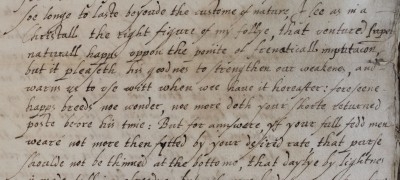 soe longe to laste beyounde the custome of nature, I see as in a
christall the right figure of my follye, that ventured super
naturall happs uppon the pointe of freneticall imputation,
but it pleaseth his goodnes to strengthen our weakenes, and
warne us to use witt when wee have it hereafter: foreseene
happs breede noe wonder, noe more doth your shorte returned
poste before his time: But for answere yf your full fedd men
weare not more then fytted by your desired rate that purse
shoulde not be thinned at the bottome, that daylye by lightnes